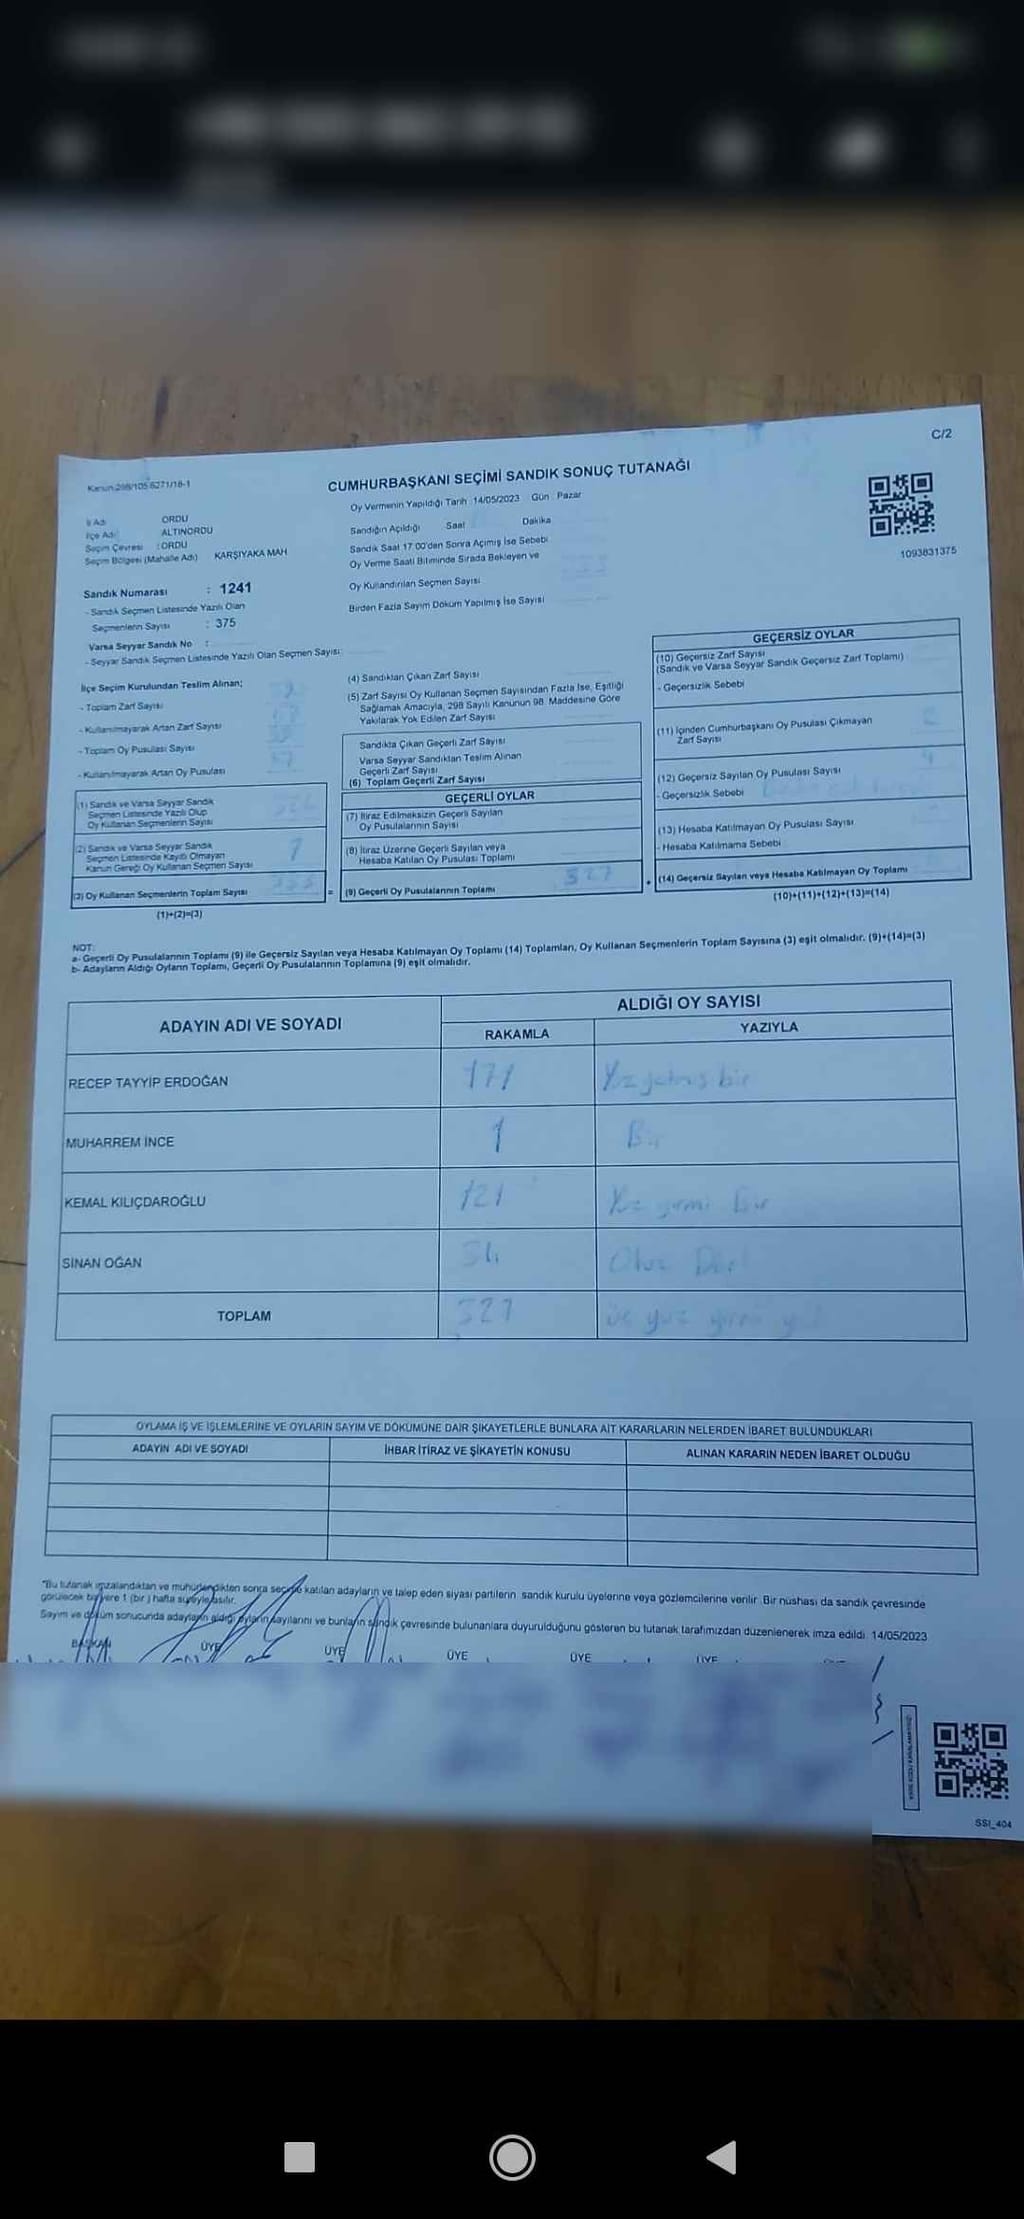 C/2
Kanun:298/105 6271/18-1
CUMHURBAŞKANI SEÇİMİ SANDIK SONUÇ TUTANAĞI
Oy Vermenin Yapıldığı Tarih :14/05/2023 Gün : Pazar
İl Adı : ORDU
İlçe Adı : ALTINORDU
Seçim Çevresi : ORDU
Seçim Bölgesi (Mahalle Adı) KARŞIYAKA MAH
Sandığın Açıldığı Saat Dakika
Sandık Saat 17:00'den Sonra Açımış İse Sebebi
Oy Verme Saati Bitiminde Sırada Bekleyen ve
Oy Kullandırılan Seçmen Sayısı
Birden Fazla Sayım Döküm Yapılmış İse Sayısı
1093831375
Sandık Numarası : 1241
- Sandık Seçmen Listesinde Yazılı Olan
Seçmenlerin Sayısı : 375
Varsa Seyyar Sandık No :
- Seyyar Sandık Seçmen Listesinde Yazılı Olan Seçmen Sayısı:
İlçe Seçim Kurulundan Teslim Alınan;
- Toplam Zarf Sayısı
- Kullanılmayarak Artan Zarf Sayısı
- Toplam Oy Pusulası Sayısı
- Kullanılmayarak Artan Oy Pusulası
(1) Sandık ve Varsa Seyyar Sandık
Seçmen Listesinde Yazılı Olup
Oy Kullanan Seçmenlerin Sayısı
(2) Sandık ve Varsa Seyyar Sandık
Seçmen Listesinde Kayıtlı Olmayan
Kanun Gereği Oy Kullanan Seçmen Sayısı
(3) Oy Kullanan Seçmenlerin Toplam Sayısı
(1)+(2)=(3)
(4) Sandıktan Çıkan Zarf Sayısı
(5) Zarf Sayısı Oy Kullanan Seçmen Sayısından Fazla İse, Eşitliği
Sağlamak Amacıyla, 298 Sayılı Kanunun 98. Maddesine Göre
Yakılarak Yok Edilen Zarf Sayısı
Sandıkta Çıkan Geçerli Zarf Sayısı
Varsa Seyyar Sandıktan Teslim Alınan
Geçerli Zarf Sayısı
(6) Toplam Geçerli Zarf Sayısı
GEÇERLİ OYLAR
(7) İtiraz Edilmeksizin Geçerli Sayılan
Oy Pusulalarının Sayısı
(8) İtiraz Üzerine Geçerli Sayılan veya
Hesaba Katılan Oy Pusulası Toplamı
= (9) Geçerli Oy Pusulalarının Toplamı 327
GEÇERSİZ OYLAR
(10) Geçersiz Zarf Sayısı
(Sandık ve Varsa Seyyar Sandık Geçersiz Zarf Toplamı)
- Geçersizlik Sebebi
(11) İçinden Cumhurbaşkanı Oy Pusulası Çıkmayan
Zarf Sayısı
(12) Geçersiz Sayılan Oy Pusulası Sayısı
- Geçersizlik Sebebi
(13) Hesaba Katılmayan Oy Pusulası Sayısı
- Hesaba Katılmama Sebebi
+ (14) Geçersiz Sayılan veya Hesaba Katılmayan Oy Toplamı
(10)+(11)+(12)+(13)=(14)
NOT:
a- Geçerli Oy Pusulalarının Toplamı (9) ile Geçersiz Sayılan veya Hesaba Katılmayan Oy Toplamı (14) Toplamları, Oy Kullanan Seçmenlerin Toplam Sayısına (3) eşit olmalıdır. (9)+(14)=(3)
b- Adayların Aldığı Oyların Toplamı, Geçerli Oy Pusulalarının Toplamına (9) eşit olmalıdır.
ADAYIN ADI VE SOYADI
ALDIĞI OY SAYISI
RAKAMLA YAZIYLA
RECEP TAYYİP ERDOĞAN 171 Yüz yetmiş bir
MUHARREM İNCE 1 Bir
KEMAL KILIÇDAROĞLU 121 Yüz yirmi Bir
SİNAN OĞAN 34 Otuz Dört
TOPLAM 327 üç yüz yirmi
OYLAMA İŞ VE İŞLEMLERİNE VE OYLARIN SAYIM VE DÖKÜMÜNE DAİR ŞİKAYETLERLE BUNLARA AİT KARARLARIN NELERDEN İBARET BULUNDUKLARI
ADAYIN ADI VE SOYADI İHBAR İTİRAZ VE ŞİKAYETİN KONUSU ALINAN KARARIN NEDEN İBARET OLDUĞU
*Bu tutanak imzalandıktan ve mühürlendikten sonra seçime katılan adayların ve talep eden siyasi partilerin sandık kurulu üyelerine veya gözlemcilerine verilir. Bir nüshası da sandık çevresinde
görülecek bir yere 1 (bir) hafta süreyle asılır.
Sayım ve döküm sonucunda adayların aldığı oyların sayılarını ve bunların sandık çevresinde bulunanlara duyurulduğunu gösteren bu tutanak tarafımızdan düzenlenerek imza edildi. 14/05/2023
BAŞKAN ÜYE ÜYE ÜYE ÜYE ÜYE
SSI_404